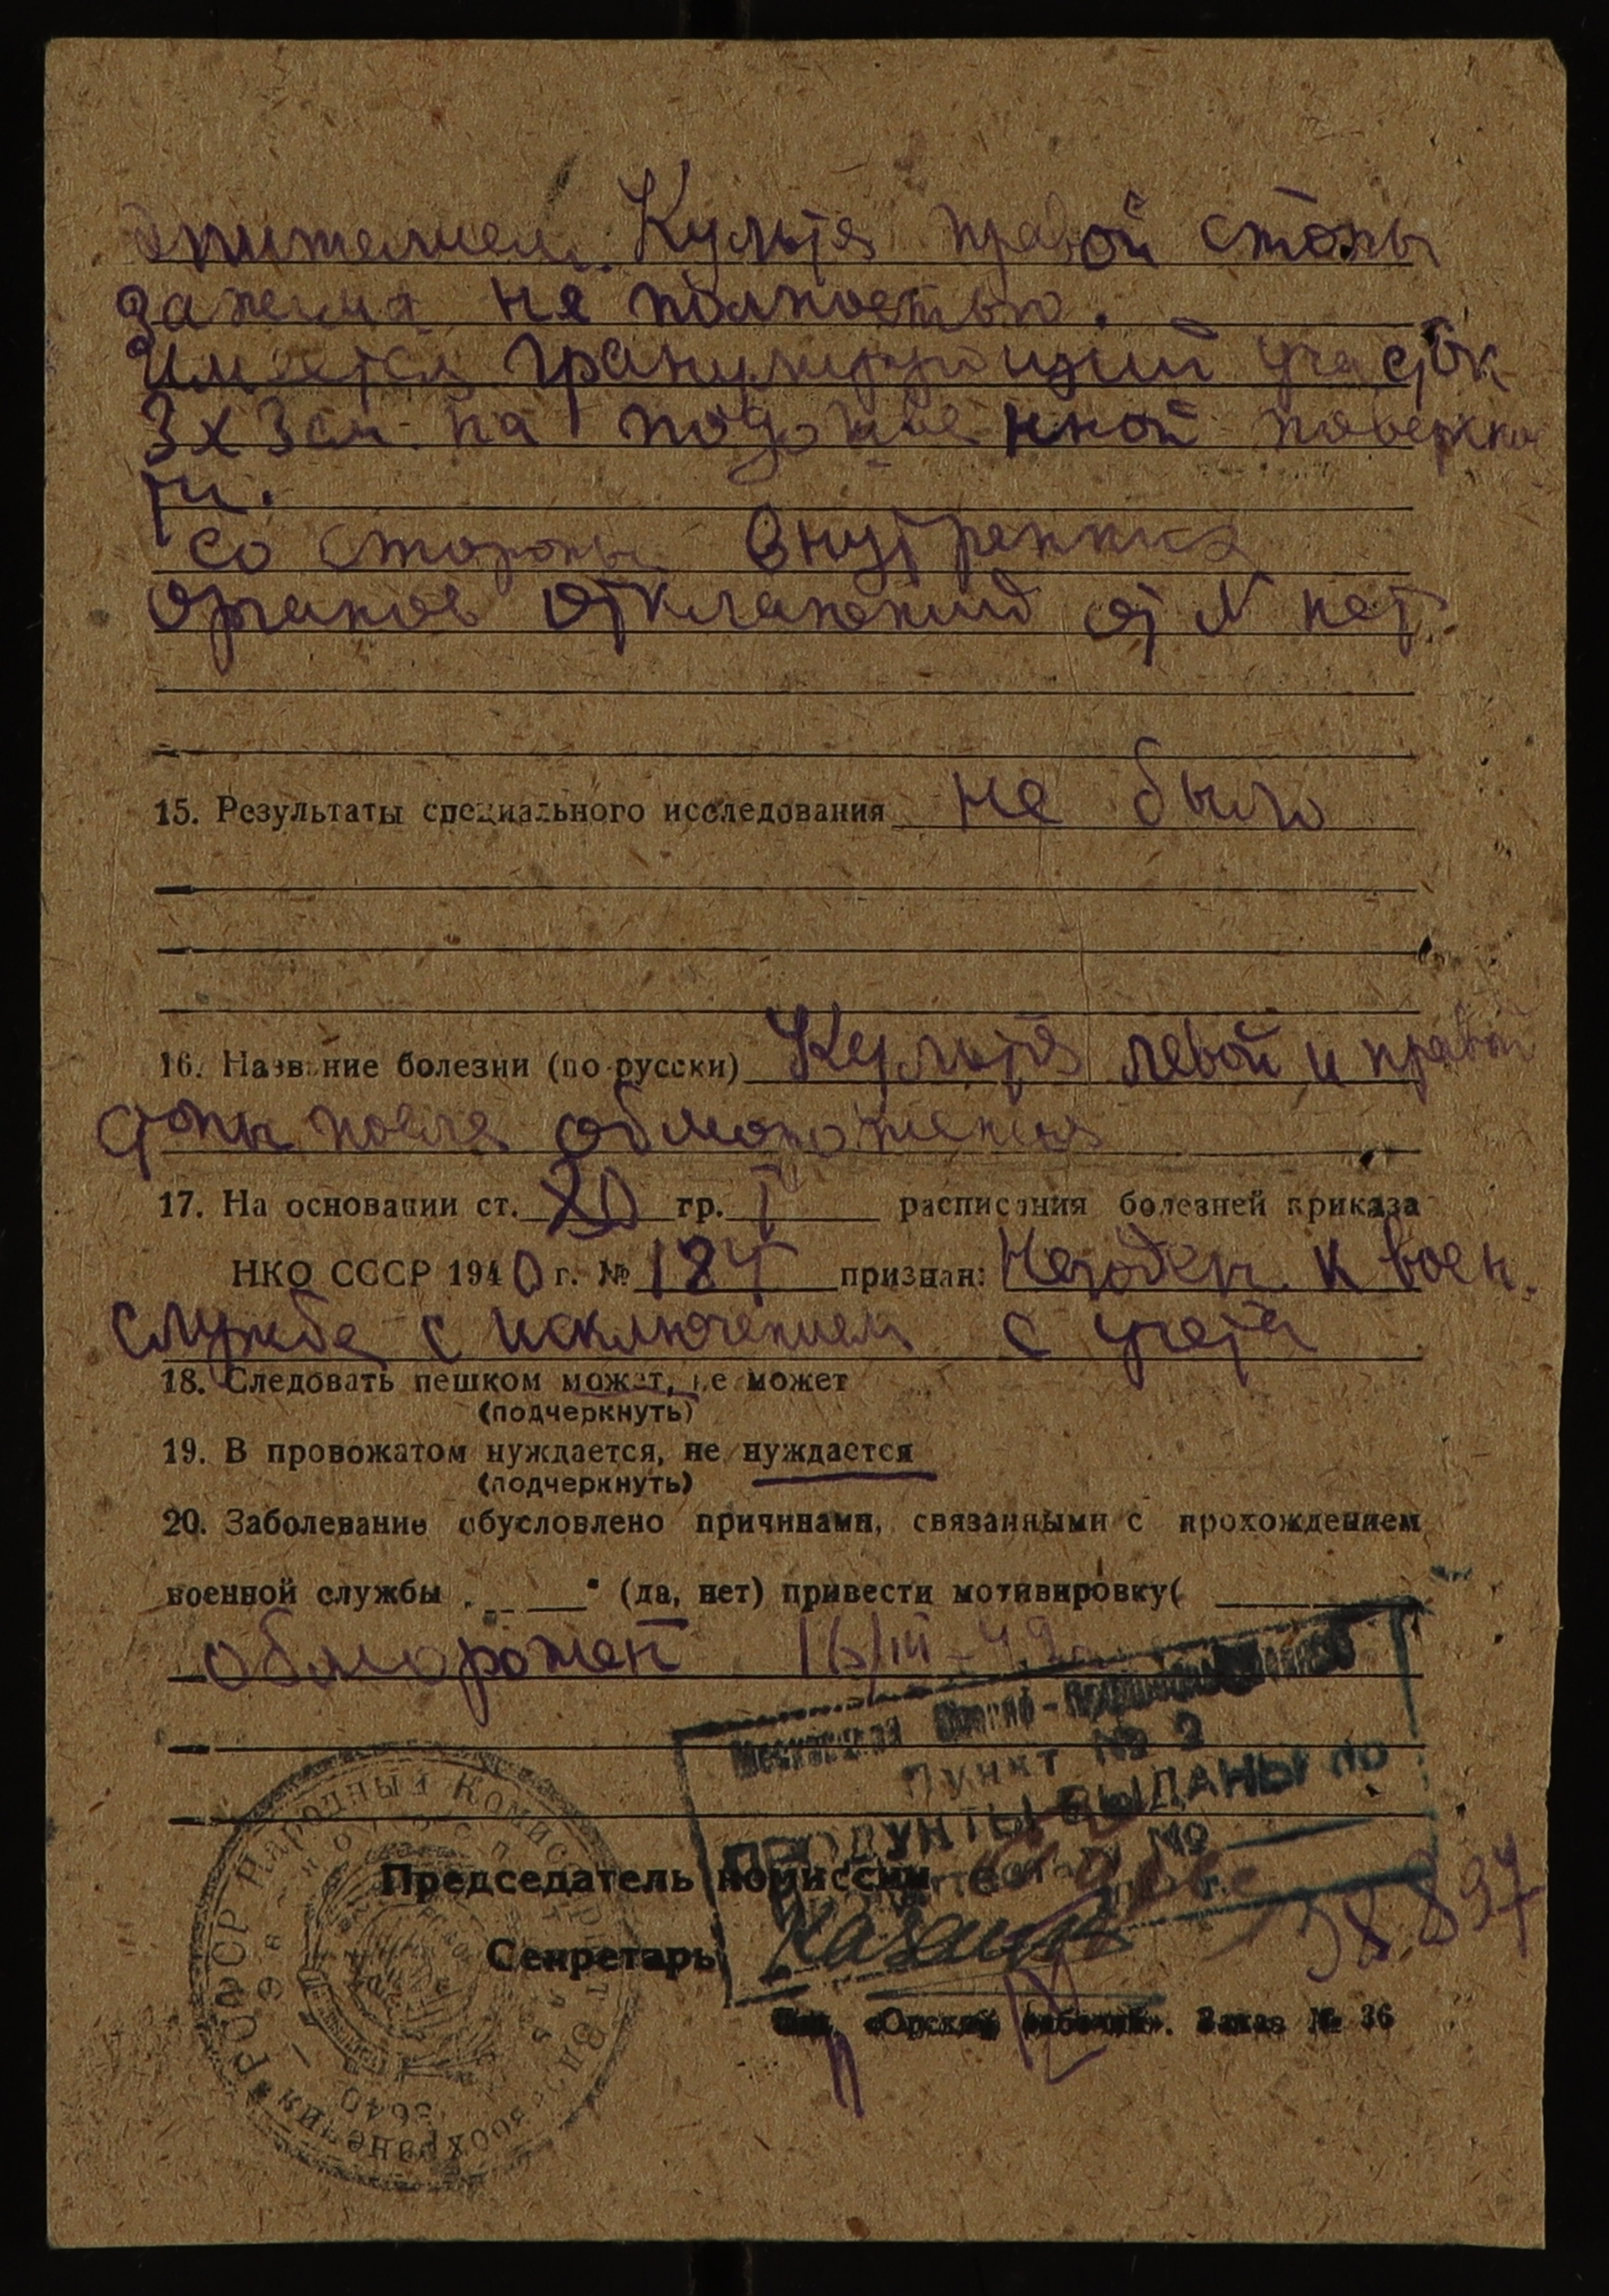 эпителием. Культя правой стопы
зажила не полностью.
Имеется гранулирующий участок
3х3см на подошвенной поверхнос
ти.
со стороны внутренних
органов отклонений от N нет.
15. Результаты специального исследования не было
16. Название болезни (по-русски) Культя левой и правой
стопы после обморожения
17. На основании ст. 80 гр. I расписания болезней приказа
НКО СССР 1940 г. № 184 признан: Негоден к воен.
службе с исключением с учета
18. Следовать пешком может, не может
(подчеркнуть)
19. В провожатом нуждается, не нуждается
(подчеркнуть)
20. Заболевание обусловлено причинами, связанными с прохождением
военной службы „ ___" (да, нет) привести мотивировку(
обморожен 16/III-42г
Пункт № 2
ПРОДУКТЫ ВЫДАНЫ по
№
Председатель комиссии
Секретарь
38897
«Орский рабочий». Заказ № 36
РСФСР Народный Комиссариат Здравоохранения
3640